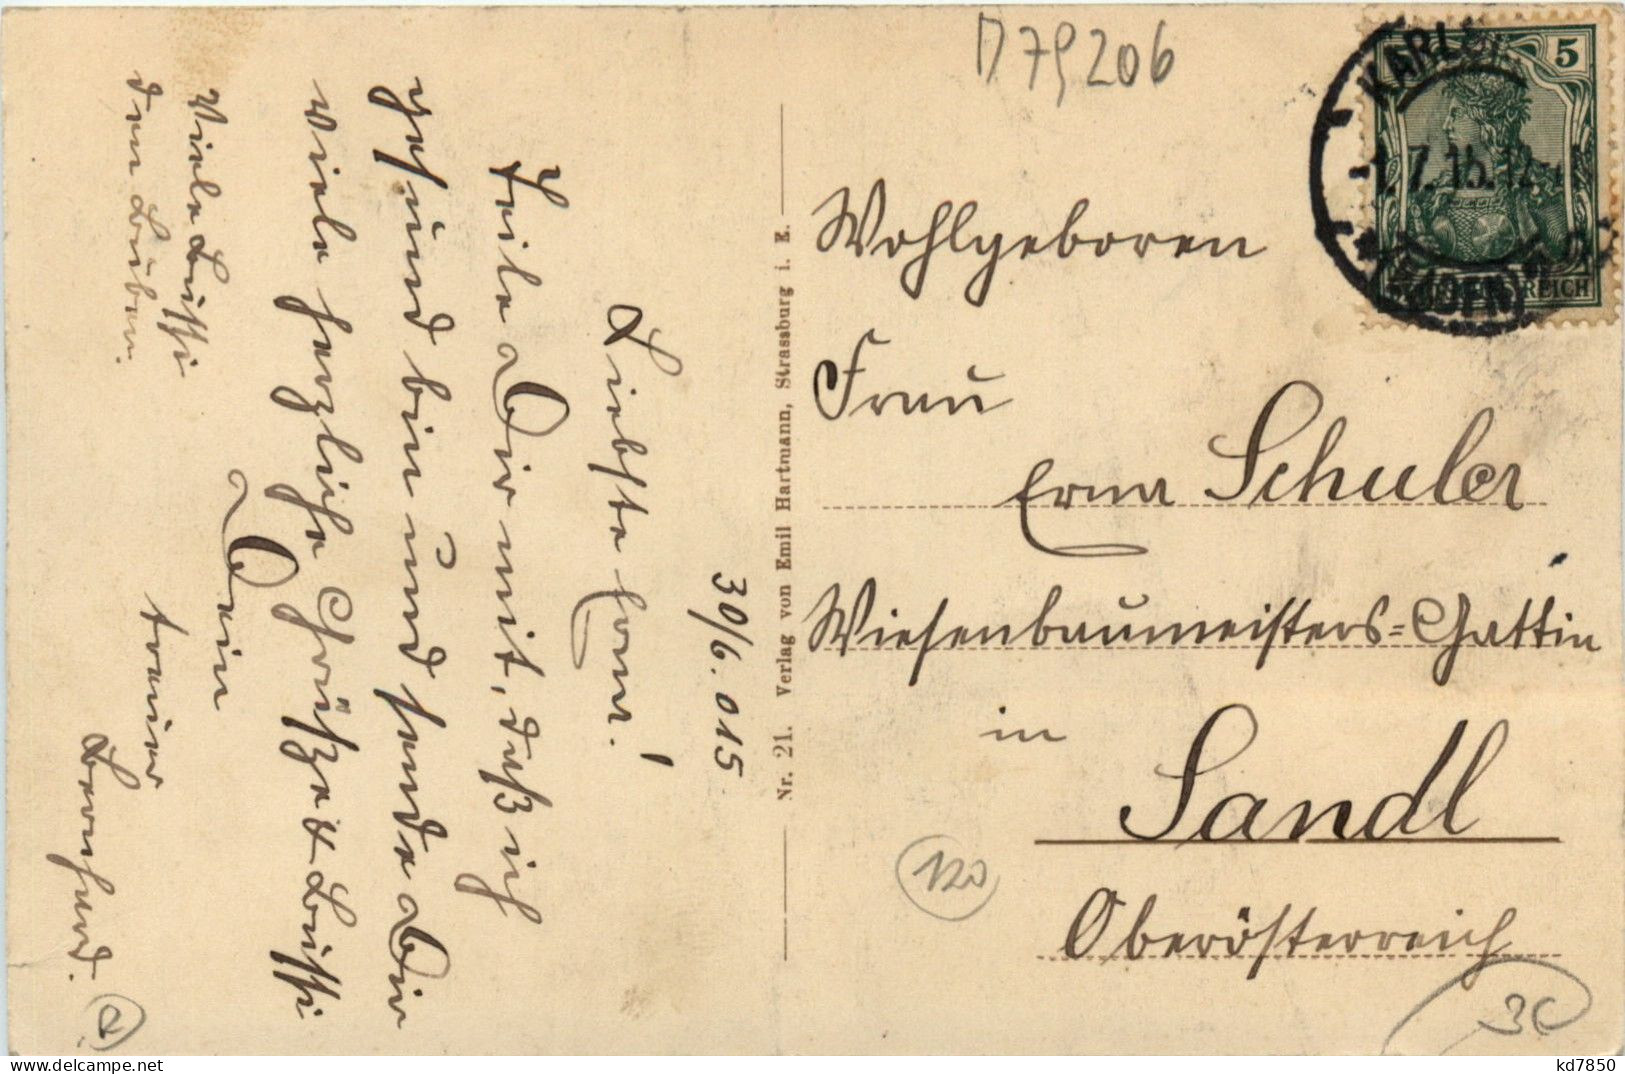 D 79206
KARLSR
5
1.7.15.12
(BADEN)
REICH
30/6. 015
Liebste Erna!
Teile Dir mit, daß ich
gesund bin und sende Dir
viele herzliche Grüße & Bussi
Dein
treuer
Bernhard.
Viele Bussi
den Buben.
Nr. 21. Verlag von Emil Hartmann, Strassburg i. E.
Wohlgeboren
Frau
Erna Schuler
Wiesenbaumeisters=Gattin
in
Sandl
Oberösterreich
120
3C
kd7850